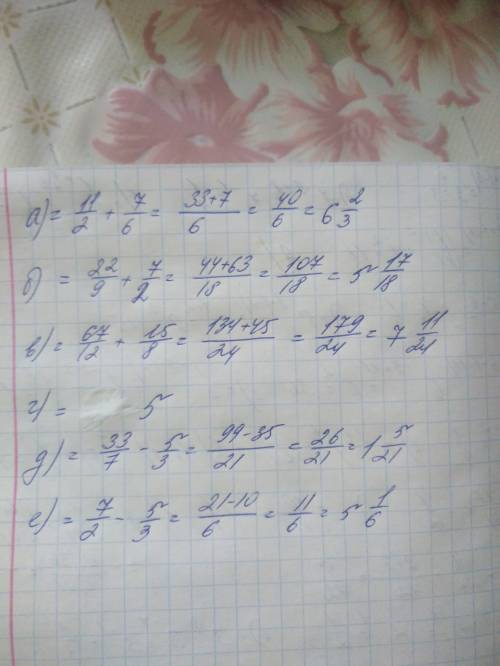 а) = 11/2 + 7/6 = 33+7/6 = 40/6 = 6 2/3
б) = 22/9 + 7/2 = 44+63/18 = 107/18 = 5 17/18
в) = 67/12 + 15/8 = 134+45/24 = 179/24 = 7 11/24
г) = 5
д) = 33/7 - 5/3 = 99-35/21 = 26/21 = 1 5/21
е) = 7/2 - 5/3 = 21-10/6 = 11/6 = 5 1/6